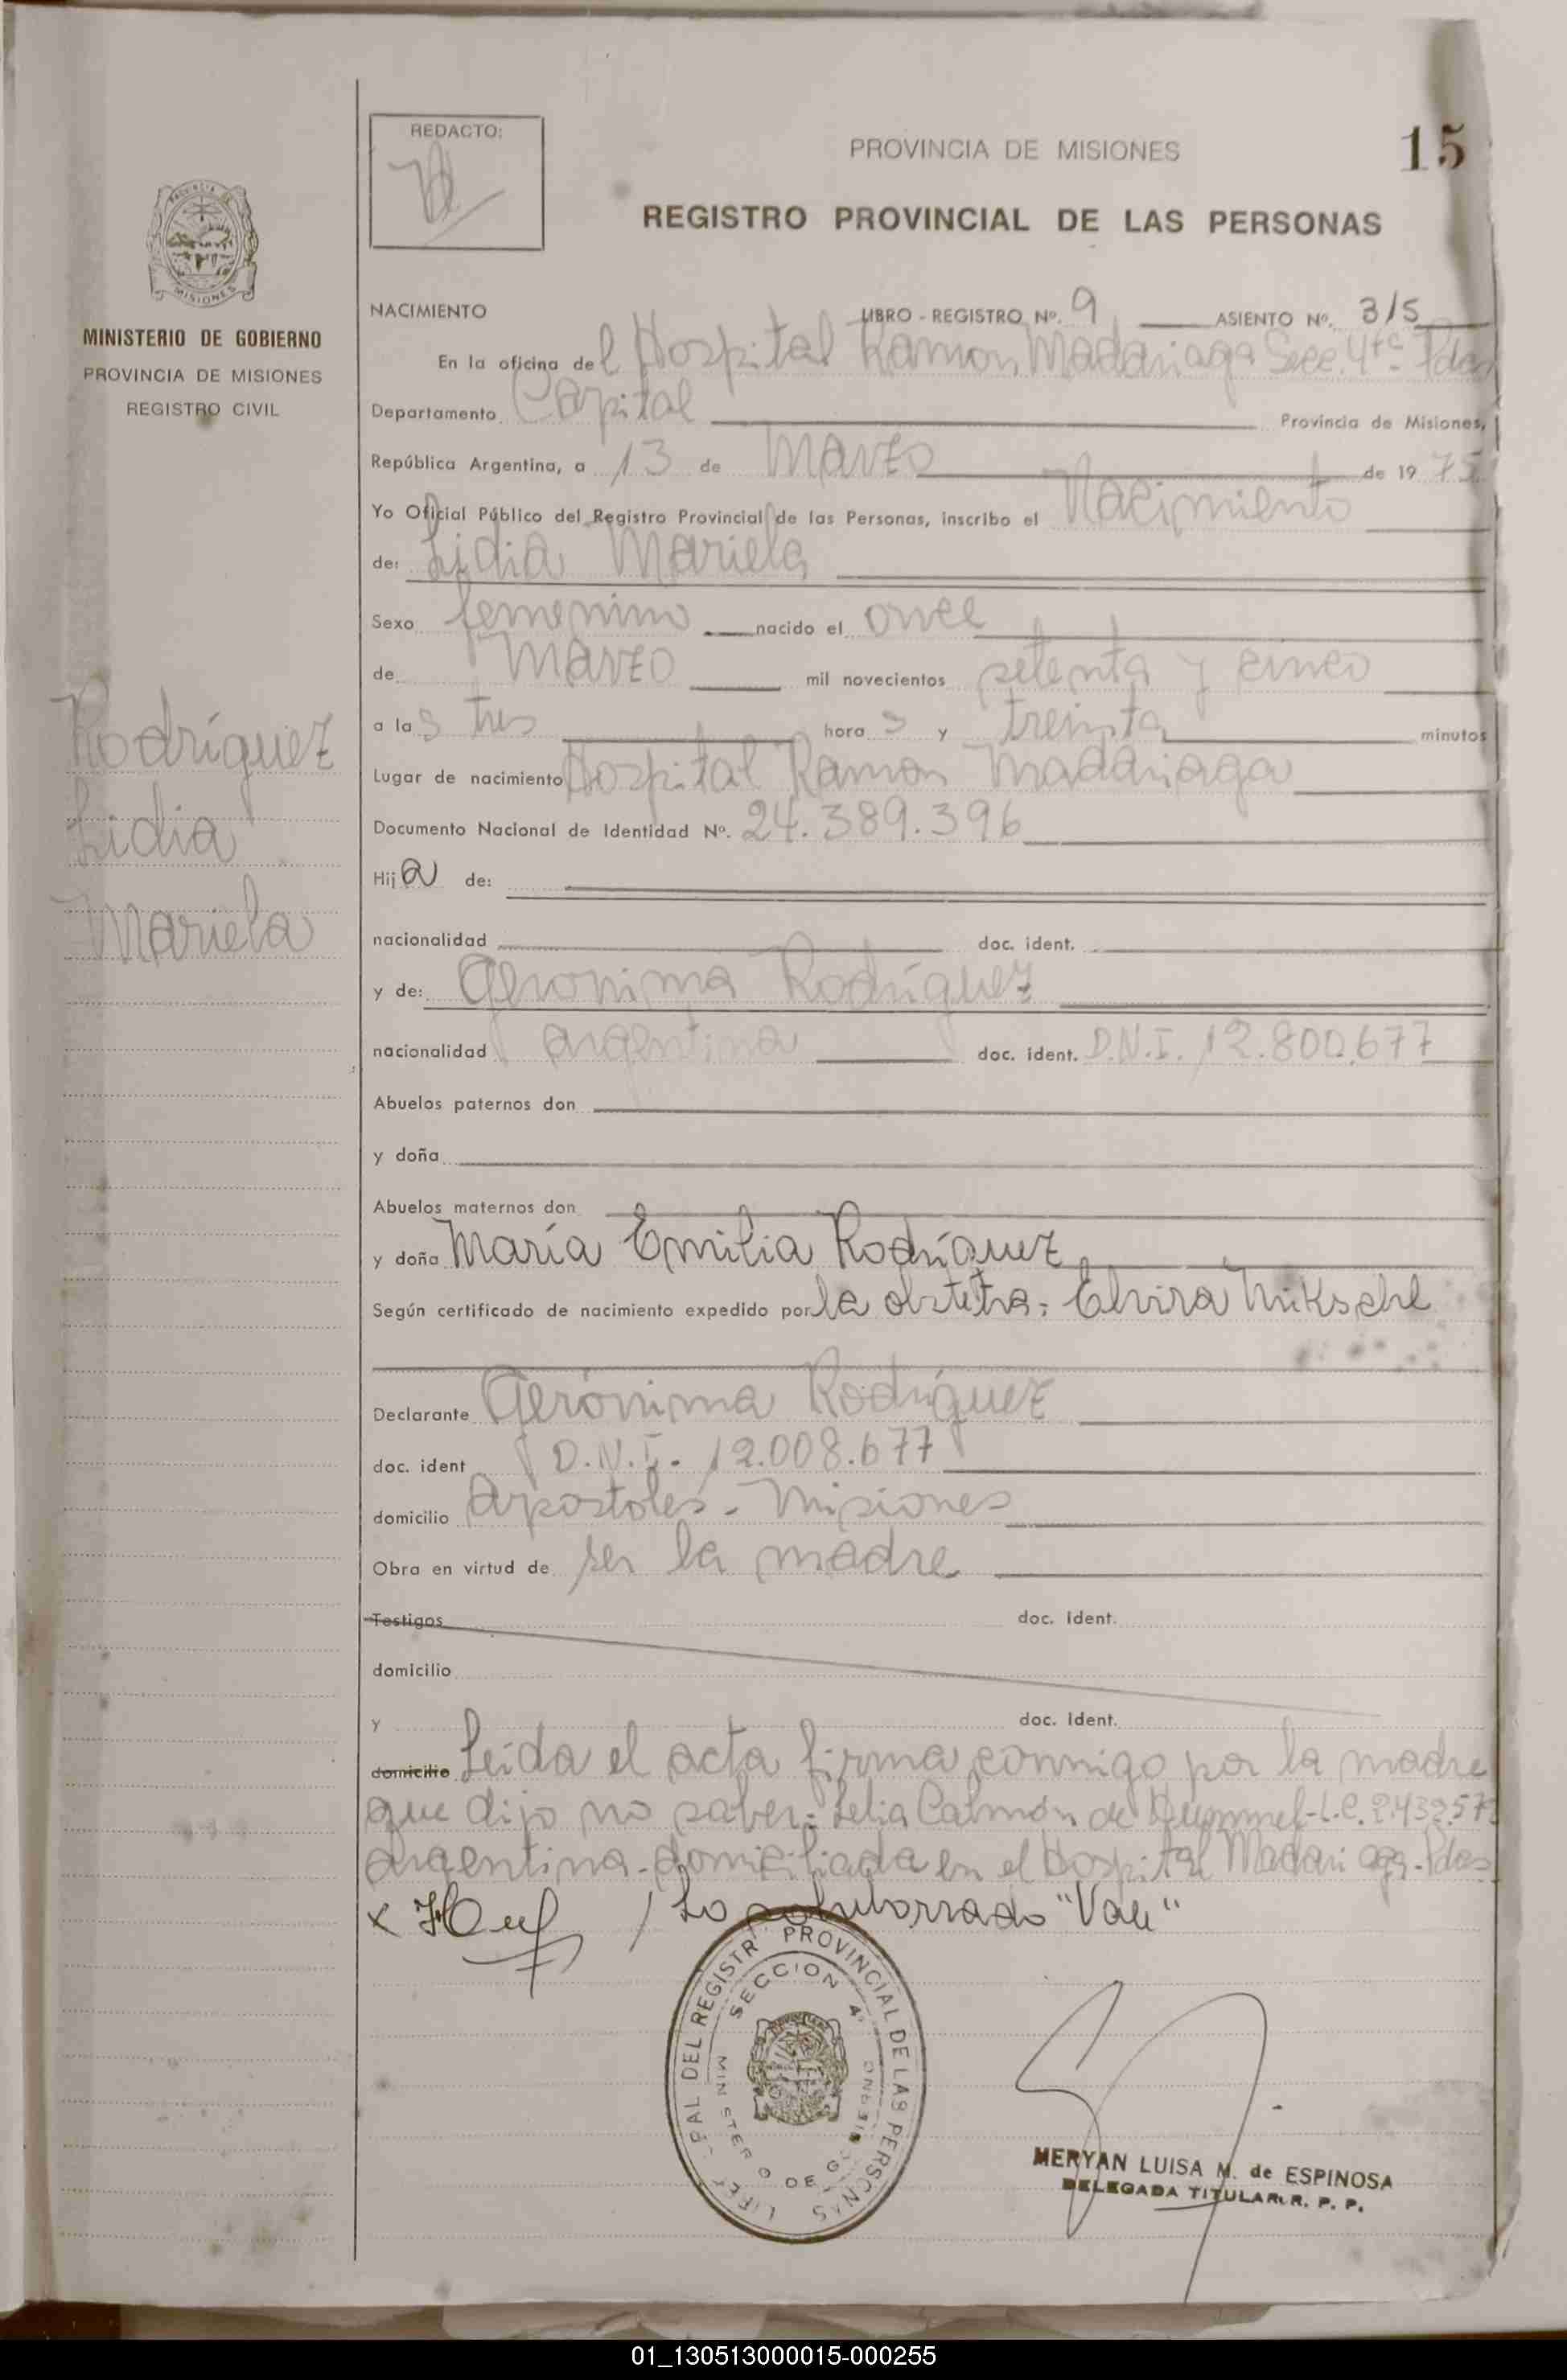 REDACTO:
PROVINCIA DE MISIONES
15
REGISTRO PROVINCIAL DE LAS PERSONAS
MISIONES
MINISTERIO DE GOBIERNO
PROVINCIA DE MISIONES
REGISTRO CIVIL
Rodríguez
Lidia
Mariela
NACIMIENTO LIBRO - REGISTRO Nº. 9 ASIENTO Nº. 315
En la oficina del Hospital Ramon Madariaga Secc. 4ta. Pdas
Departamento Capital Provincia de Misiones,
República Argentina, a 13 de Marzo de 1975
Yo Oficial Público del Registro Provincial de las Personas, inscribo el Nacimiento
de: Lidia Mariela
Sexo femenino nacido el once
de Marzo mil novecientos setenta y cinco
a las tres horas y treinta minutos
Lugar de nacimiento Hospital Ramon Madariaga
Documento Nacional de Identidad Nº. 24.389.396
Hija de:
nacionalidad doc. ident.
y de: Geronima Rodríguez
nacionalidad argentina doc. ident. D.N.I. 12.800.677
Abuelos paternos don
y doña
Abuelos maternos don
y doña María Emilia Rodríguez
Según certificado de nacimiento expedido por la obstetra: Elvira
Declarante Gerónima Rodríguez
doc. ident D.N.I. 12.008.677
domicilio Apostoles - Misiones
Obra en virtud de ser la madre
Testigos doc. ident.
domicilio
y doc. ident.
domicilio Leída el acta firma conmigo por la madre
que dijo no saber: Lelia de L.C. 2.432.57
argentina - domiciliada en el Hospital Madariaga - Pdas
x / Lo "Vale"
PROVINCIAL DE LAS PERSONAS
SECCION 4ª
MINISTERIO DE GOBIERNO
MERYAN LUISA M. de ESPINOSA
DELEGADA TITULAR R. P. P.
01_130513000015-000255